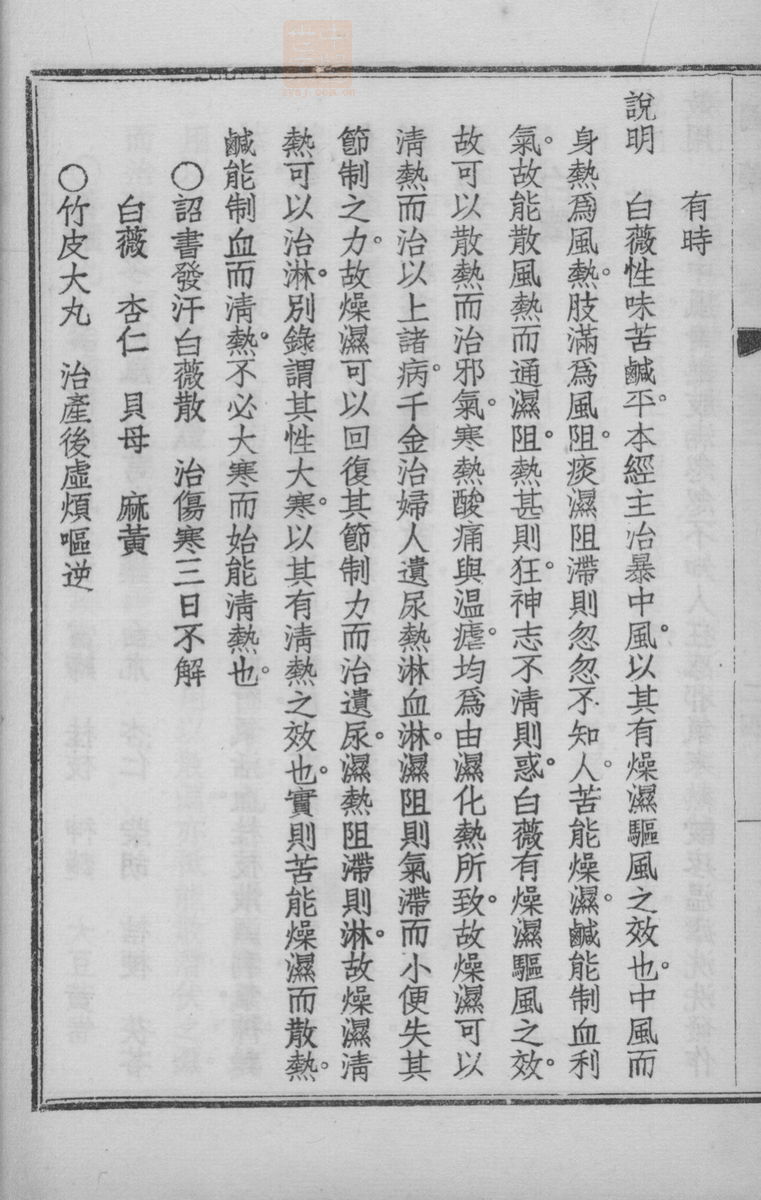 有時
說明　白薇性味苦鹹平。本經主治暴中風。以其有燥濕驅風之效也。中風而
身熱爲風熱。肢滿爲風阻。痰濕阻滯則忽忽不知人。苦能燥濕。鹹能制血利
氣。故能散風熱而通濕阻。熱甚則狂。神志不淸則惑。白薇有燥濕驅風之效。
故可以散熱而治邪氣。寒熱酸痛與温瘧。均爲由濕化熱所致。故燥濕可以
淸熱而治以上諸病。千金治婦人遺尿熱淋血淋。濕阻則氣滯而小便失其
節制之力。故燥濕可以回復其節制力而治遺尿。濕熱阻滯則淋。故燥濕淸
熱可以治淋。別錄謂其性大寒。以其有淸熱之效也。實則苦能燥濕而散熱。
鹹能制血而淸熱。不必大寒而始能淸熱也。
○詔書發汗白薇散　治傷寒三日不解
白薇　杏仁　貝母　麻黃
○竹皮大丸　治產後虛煩嘔逆